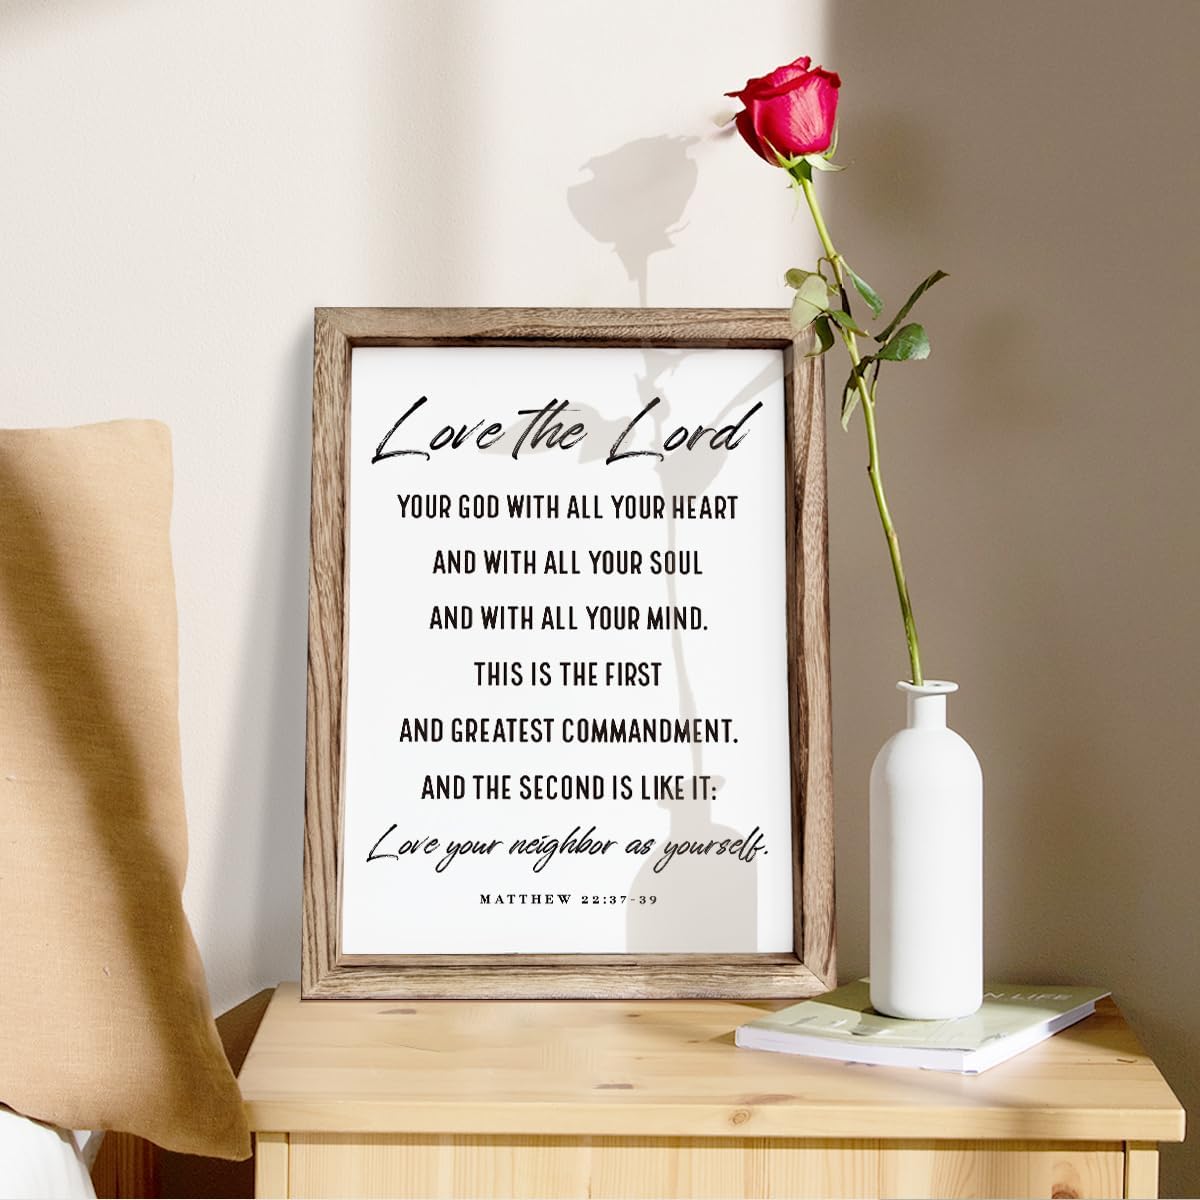 Love the Lord
YOUR GOD WITH ALL YOUR HEART
AND WITH ALL YOUR SOUL
AND WITH ALL YOUR MIND.
THIS IS THE FIRST
AND GREATEST COMMANDMENT.
AND THE SECOND IS LIKE IT:
Love your neighbor as yourself.
MATTHEW 22:37-39
LIFE